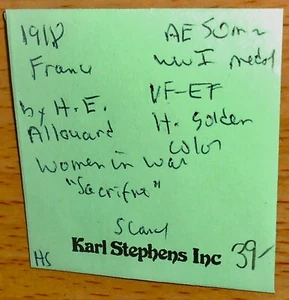 1918 AE 50mm
France WWI medal
by H. E. VF-EF
Allouard lt. golden
Women in War color
"Sacrifice"
Scarce
Karl Stephens Inc 39-
HS